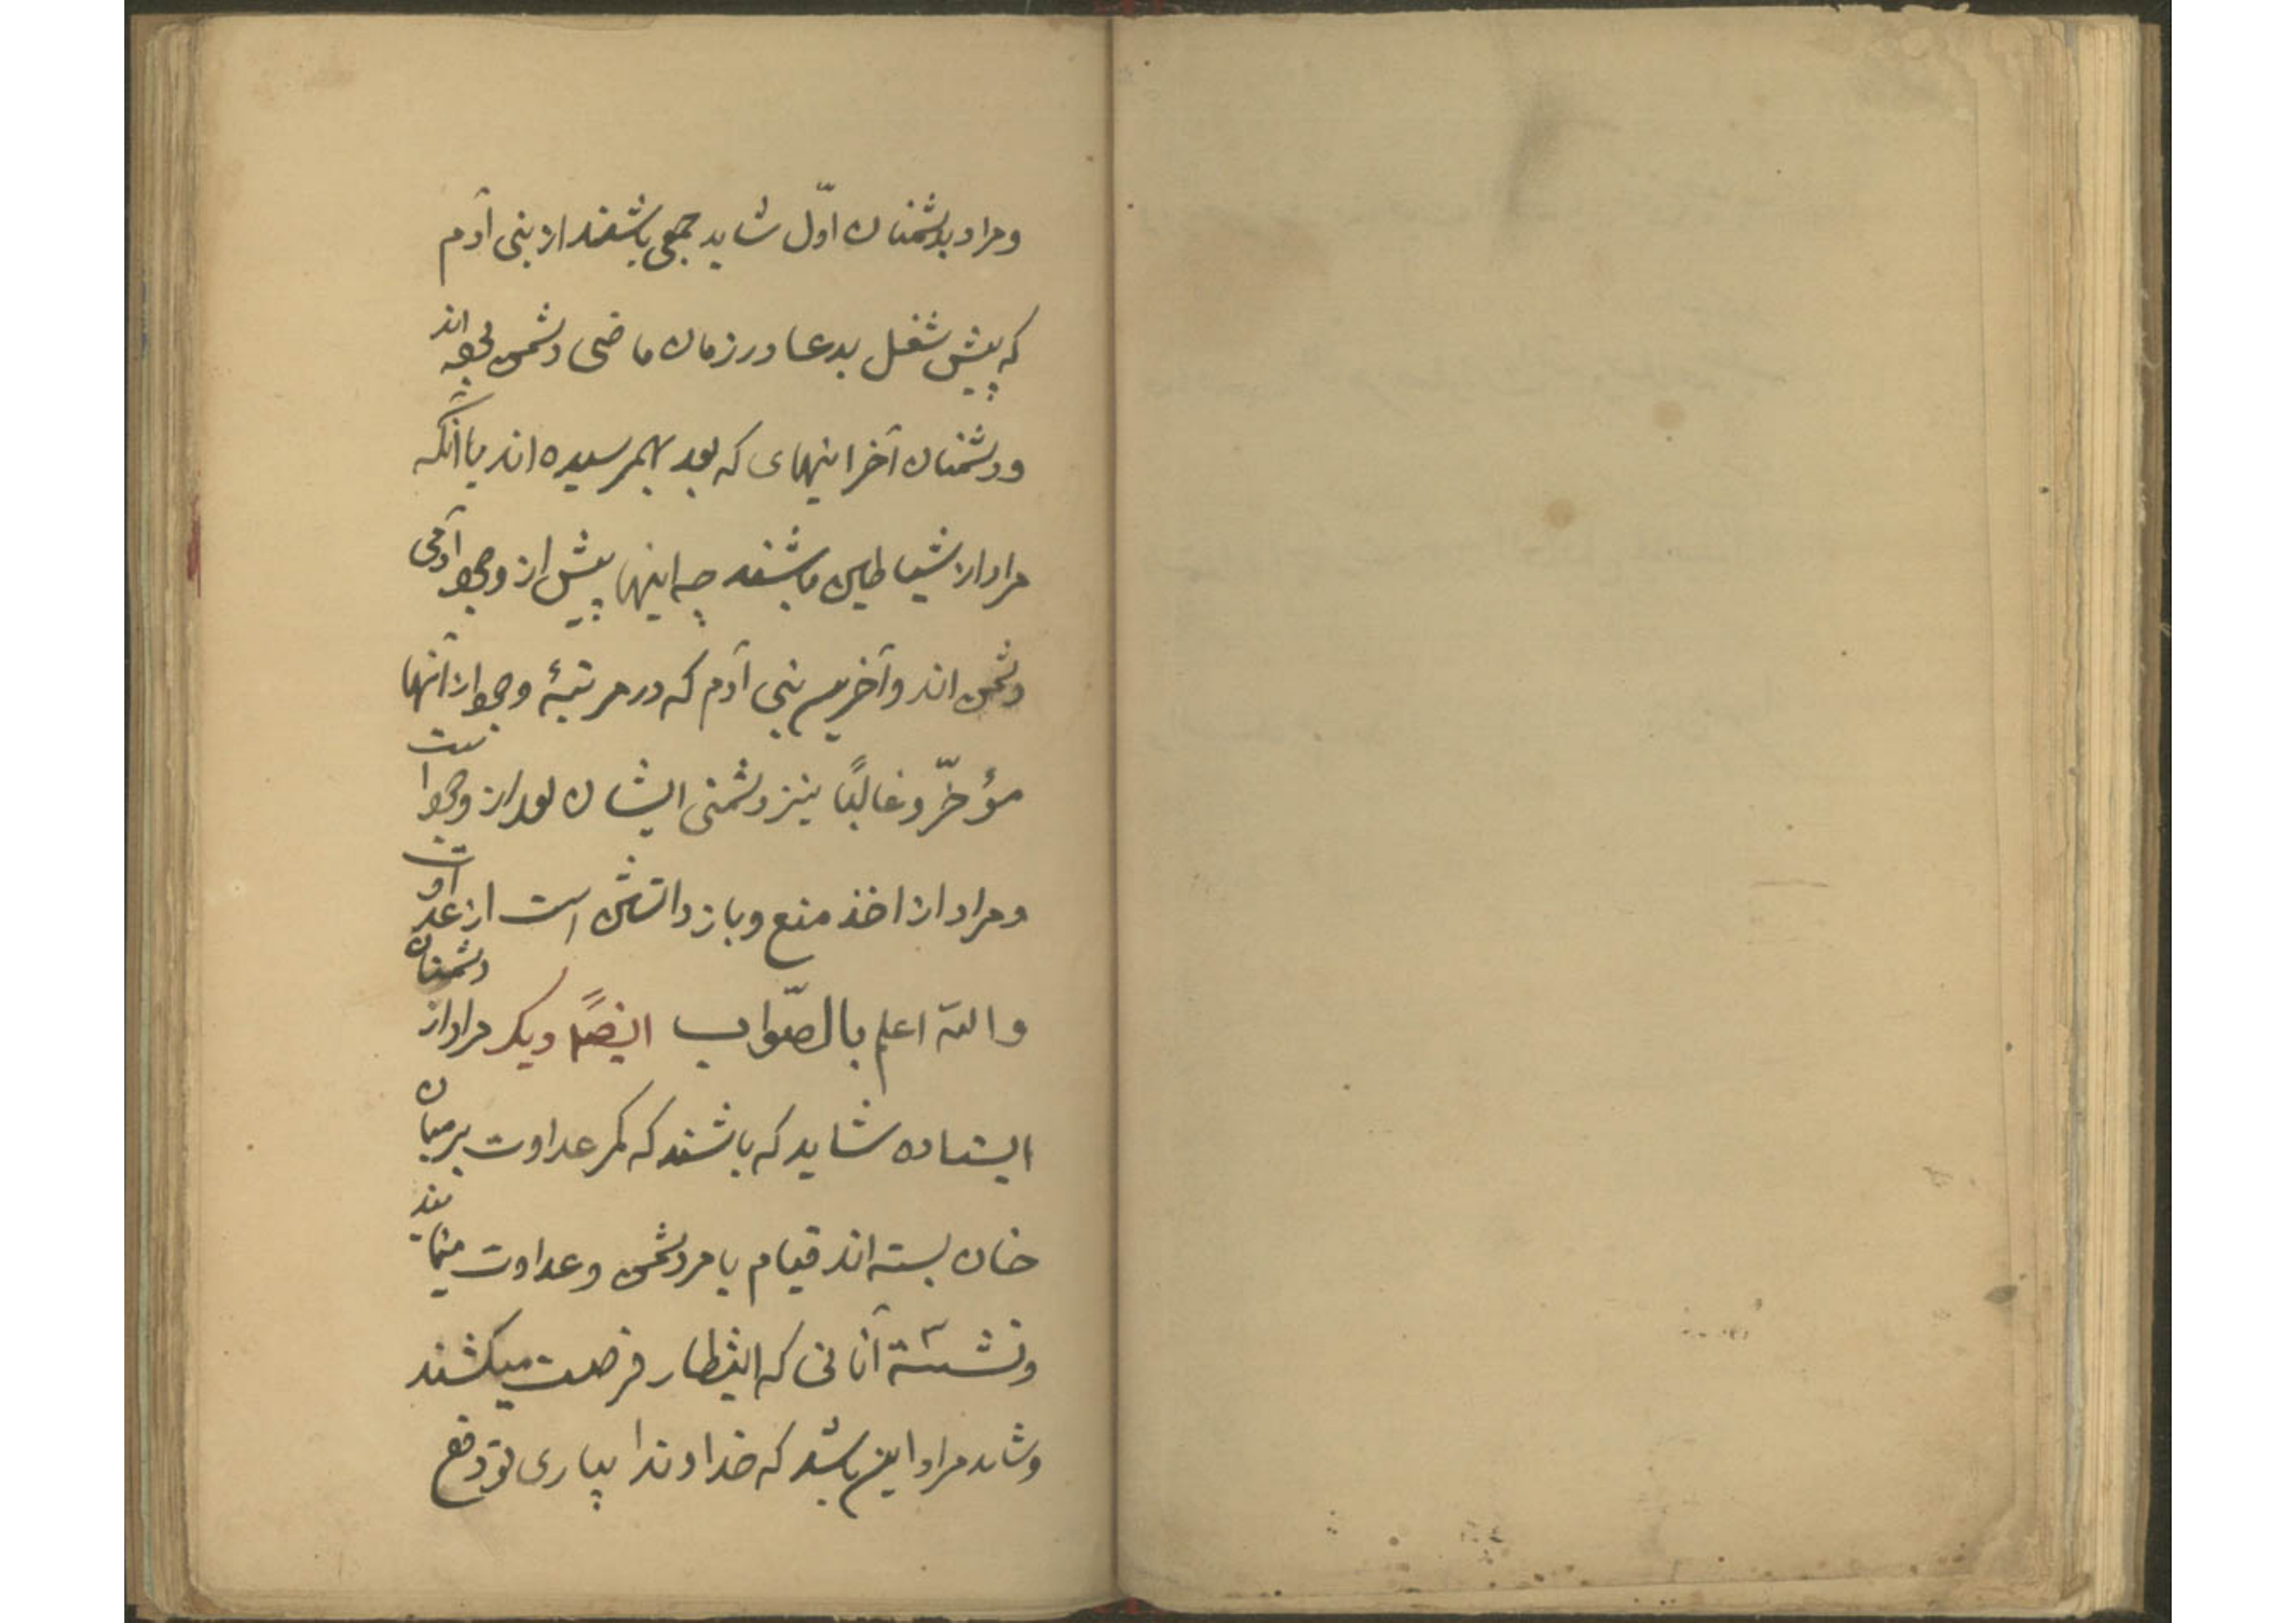 ومراد بدشمنان اوّل شاید جمعی باشند از بنی آدم
که پیش شغل بدعا در زمان ماضی دشمن بوده اند
ودشمنان آخر اینهای که بعد بهمرسیده اند یا آنکه
مراد از شیاطین باشند چه اینها پیش از وجود آدمی
دشمن اند وآخرین بنی آدم که در مرتبهٔ وجود از آنها
مؤخّر وغالبًا نیز دشمنی ایشان بعد از وجود است
ومراد از اخذ منع وباز داشتن است از عداوت
والله اعلم بالصّواب ایضًا دیگر مراد از دشمنان
ایستاده شاید که باشند که کمر عداوت برمیان
خان بسته اند قیام بامر دشمن وعداوت مینمایند
ونشسته آنانی که انتظار فرصت میکشند
وشاید مراد این باشد که خداوندا بیاری تو دفع